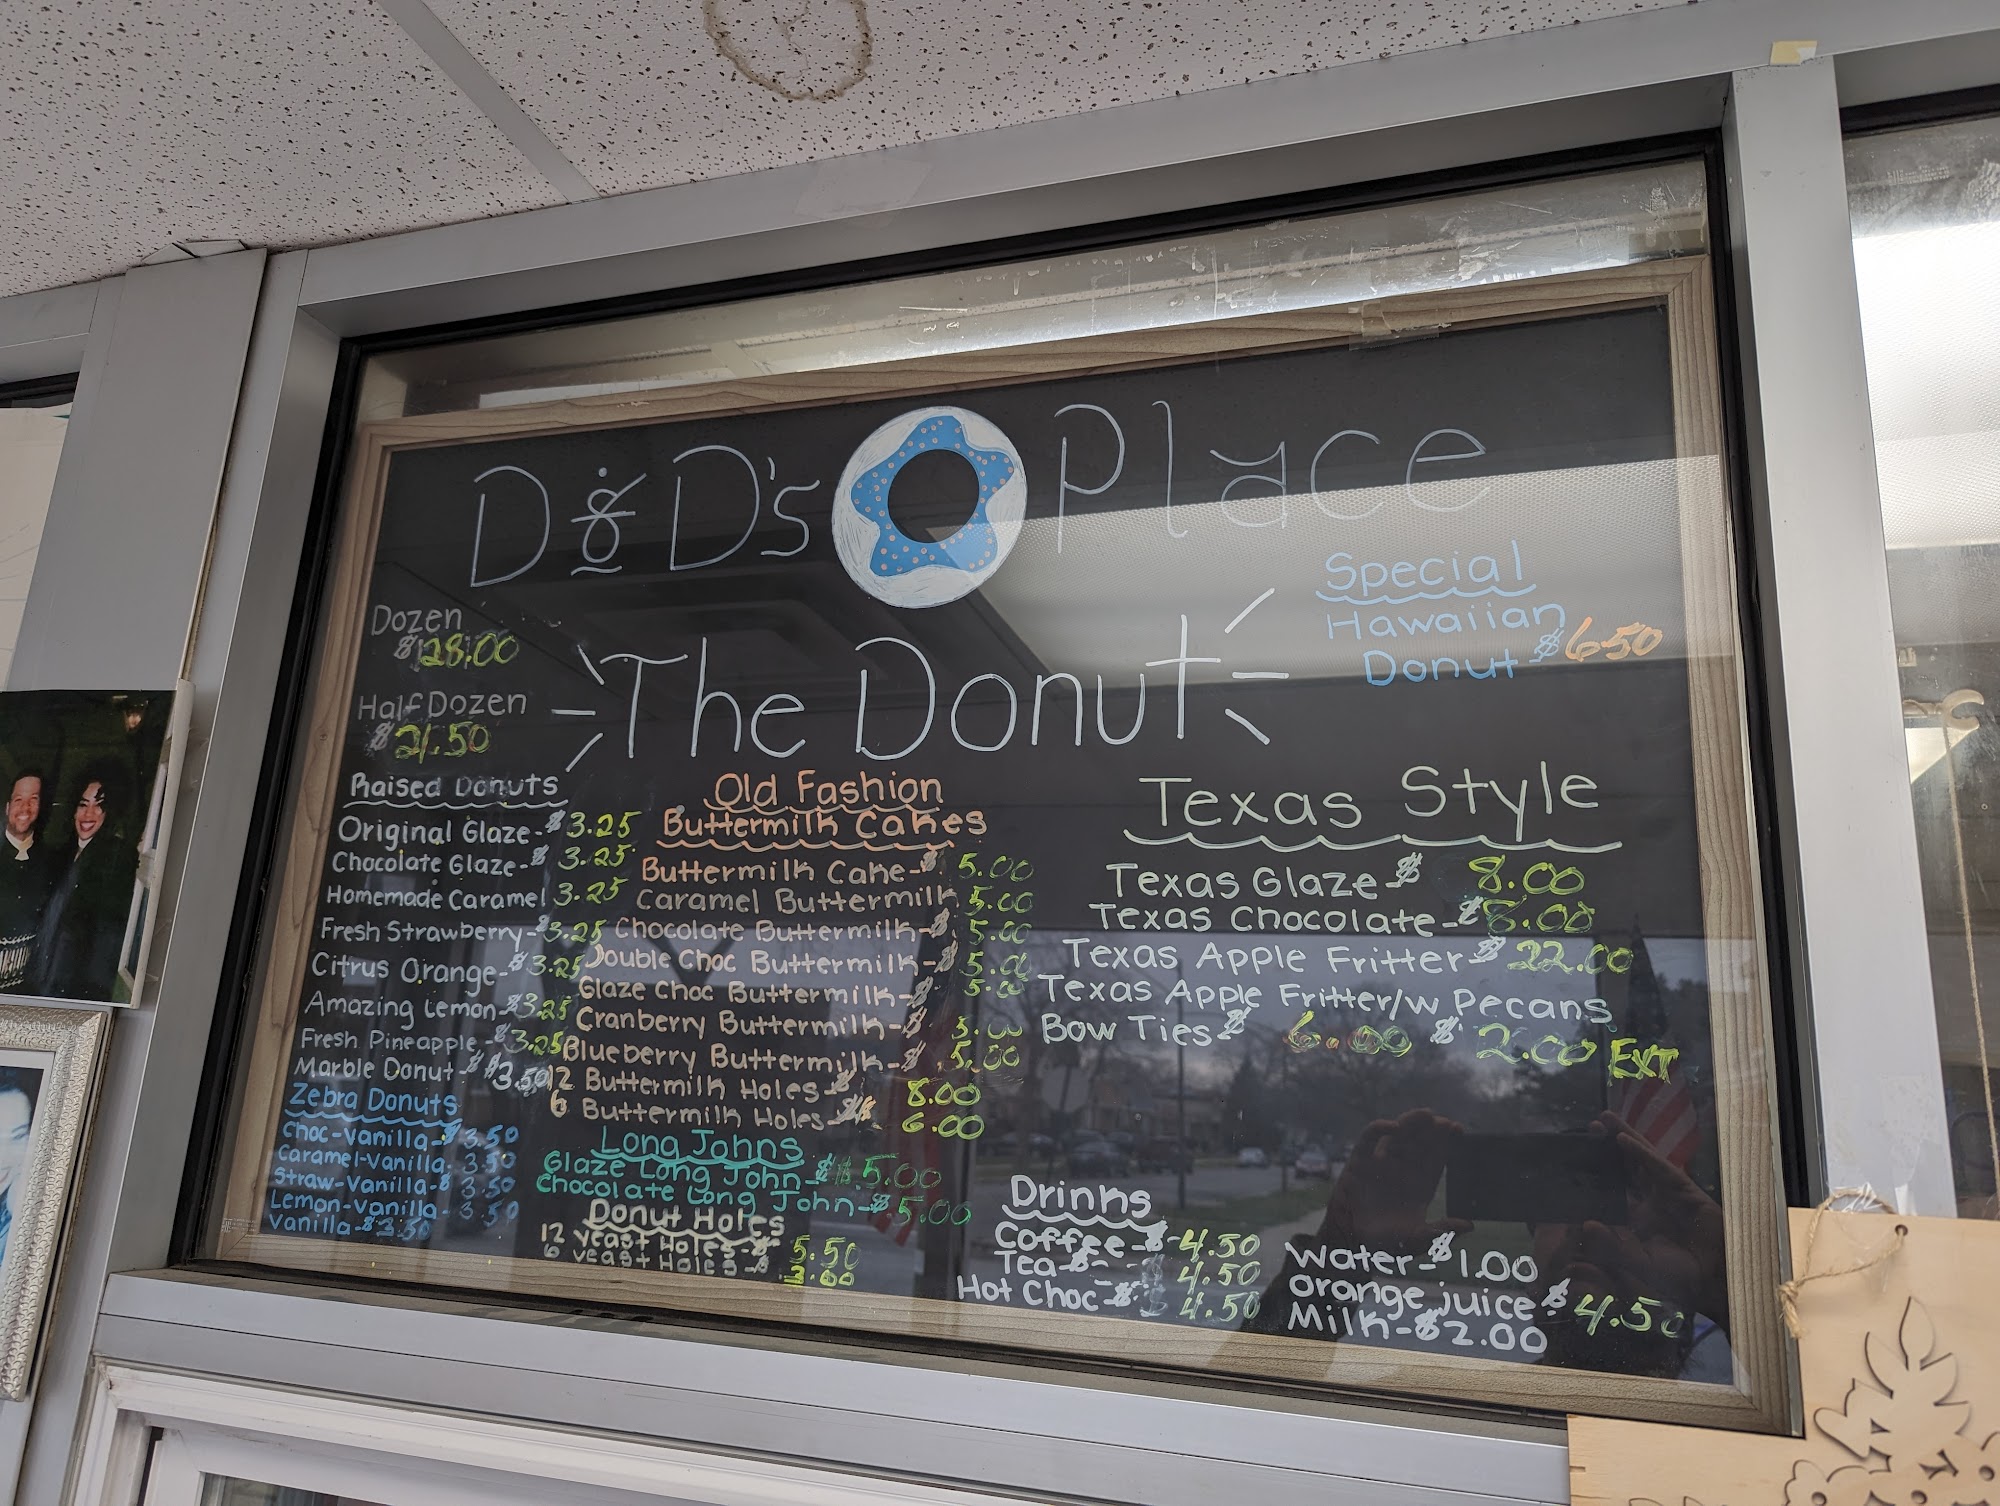 D & D's Place
The Donut
Dozen
$28.00
Half Dozen
$21.50
Special
Hawaiian
Donut $6.50
Raised Donuts
Original Glaze-$3.25
Chocolate Glaze-$3.25
Homemade Caramel 3.25
Fresh Strawberry-$3.25
Citrus Orange-$3.25
Amazing Lemon-$3.25
Fresh Pineapple-$3.25
Marble Donut-$3.50
Zebra Donuts
Choc-Vanilla-$3.50
Caramel-Vanilla-3.50
Straw-Vanilla-$3.50
Lemon-Vanilla-3.50
Vanilla-$3.50
Old Fashion
Buttermilk Cakes
Buttermilk Cake-$5.00
Caramel Buttermilk 5.00
Chocolate Buttermilk-$5.00
Double Choc Buttermilk-$5.00
Glaze Choc Buttermilk-$5.00
Cranberry Buttermilk-$5.00
Blueberry Buttermilk-$5.00
12 Buttermilk Holes-$8.00
6 Buttermilk Holes-$6.00
Long Johns
Glaze Long John-$5.00
Chocolate Long John-$5.00
Donut Holes
12 Yeast Holes-$5.50
6 Yeast Holes-$3.00
Texas Style
Texas Glaze-$8.00
Texas Chocolate-$8.00
Texas Apple Fritter-$22.00
Texas Apple Fritter/w Pecans
Bow Ties-$6.00 $2.00 EXT
Drinks
Coffee-$4.50
Tea-$4.50
Hot Choc-$4.50
Water-$1.00
Orange juice $4.50
Milk-$2.00